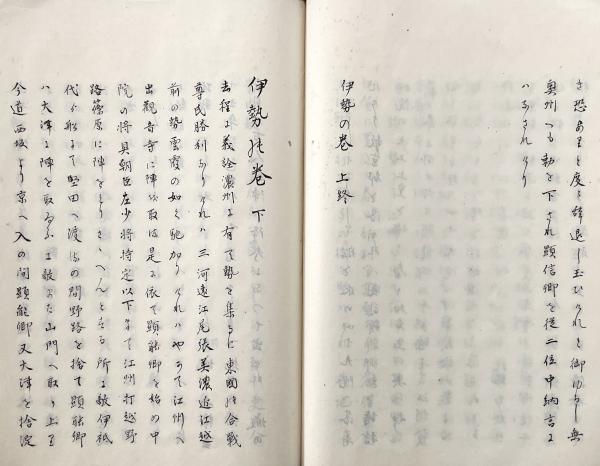 さ恐あまと度々辞退し玉ひけれと御ゆるし無
奥州へも勅を下され顕信卿を従二位中納言に
ハなされけり
伊勢の巻 上終
伊勢の巻 下
去程に義詮濃州に有て勢を集るに東國の合戰
尊氏勝利ありけれハ三河遠江尾張美濃近江越
前の勢雲霞の如く馳加りけれハやかて江州へ
出観音寺に陣以敵は是に依て顕能卿を始め中
院の將具朝臣左少将持定以下にて江州打越野
路篠原に陣をとりさゝへんとする所に敵伊祇
代ゟ船にて堅田へ渡るの間野路を捨て顕能卿
ハ大津に陣を取るに敵また山門へ取り上り
今道西坂より京へ入の間顕能卿又大津を捨淀